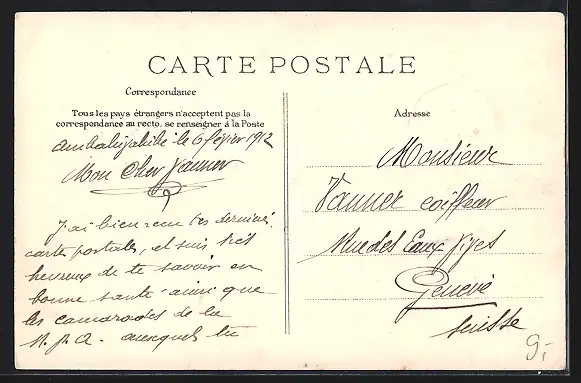 CARTE POSTALE
Correspondance
Tous les pays étrangers n'acceptent pas la
correspondance au recto, se renseigner à la Poste
Adresse
le 6 février 1912
Mon Cher Vanner
J'ai bien reçu tes dernière
cartes postales, et suis très
heureux de te savoir en
bonne santé ainsi que
les camarades de la
auxquels tu
Monsieur
Vanner coiffeur
Rue des Eaux-Vives
Genève
Suisse
9.-